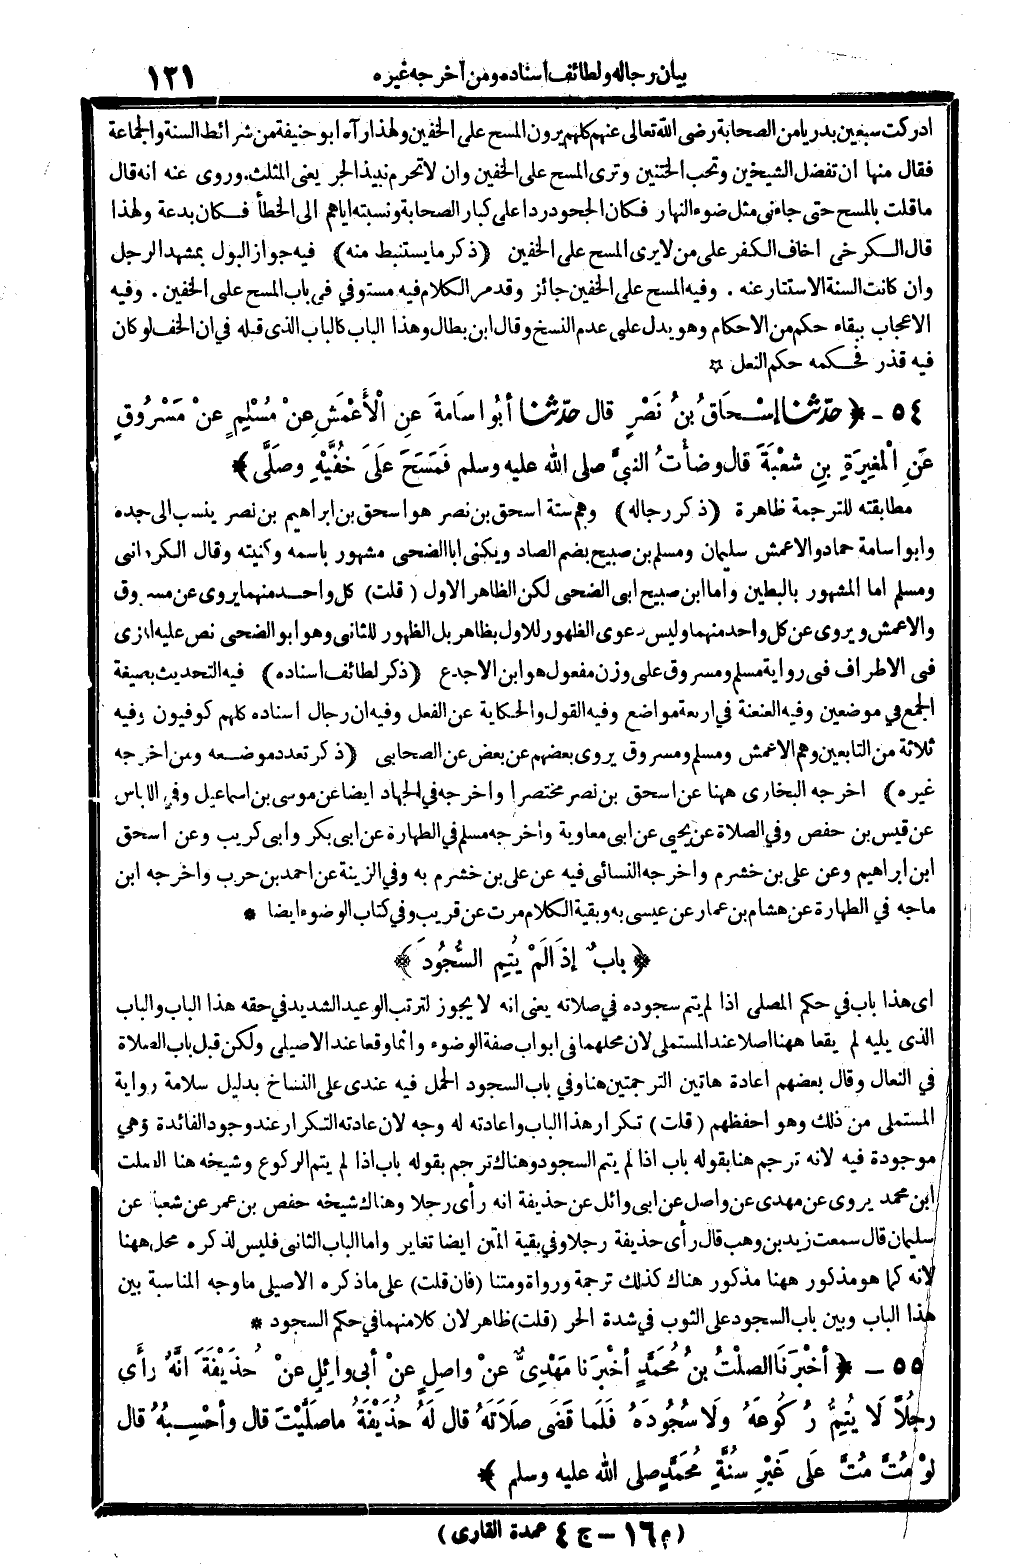 بيان رجاله ولطائف اسناده ومن اخرجه غيره ١٢١
ادركت سبعين بدريا من الصحابة رضى الله تعالى عنهم كلهم يرون المسح على الخفين ولهذا رآه ابو حنيفة من شرائط السنة والجماعة
فقال منها ان تفضل الشيخين وتحب الختنين وترى المسح على الخفين وان لا تحرم نبيذ الجر يعنى المثلث . وروى عنه انه قال
ما قلت بالمسح حتى جاءنى مثل ضوء النهار فكان الجحود ردا على كبار الصحابة ونسبته اياهم الى الخطأ فكان بدعة ولهذا
قال الكرخى اخاف الكفر على من لا يرى المسح على الخفين (ذكر ما يستنبط منه) فيه جواز البول بمشهد الرجل
وان كانت السنة الاستتار عنه . وفيه المسح على الخفين جائز وقد مر الكلام فيه مستوفي فى باب المسح على الخفين . وفيه
الاعجاب ببقاء حكم من الاحكام وهو يدل على عدم النسخ وقال ابن بطال وهذا الباب كالباب الذى قبله في ان الخف لو كان
فيه قذر فحكمه حكم النعل ☆
٥٤ - ﴿ حَدَّثَنَا إِسْحَاقُ بْنُ نَصْرٍ قال حَدَّثَنَا أَبُو أسَامَةَ عَنِ الْأَعْمَشِ عنْ مُسْلِمٍ عنْ مَسْرُوقٍ
عَنِ الْمغِيرَةِ بنِ شعْبَةَ قال وضأْتُ النبيَّ صلى الله عليه وسلم فَمَسَحَ عَلَى خفَّيْهِ وصَلَّى ﴾
مطابقته للترجمة ظاهرة (ذكر رجاله) وهم ستة اسحق بن نصر هو اسحق بن ابراهيم بن نصر ينسب الى جده
وابو اسامة حماد والاعمش سليمان ومسلم بن صبيح بضم الصاد ويكنى ابا الضحى مشهور باسمه وكنيته وقال الكرمانى
ومسلم اما المشهور بالبطين واما ابن صبيح ابى الضحى لكن الظاهر الاول (قلت) كل واحد منهما يروى عن مسروق
والاعمش ويروى عن كل واحد منهما وليس دعوى الظهور للاول بظاهر بل الظهور للثانى وهو ابو الضحى نص عليه المزى
فى الاطراف فى رواية مسلم ومسروق على وزن مفعول هو ابن الاجدع (ذكر لطائف اسناده) فيه التحديث بصيغة
الجمع في موضعين وفيه العنعنة في اربعة مواضع وفيه القول والحكاية عن الفعل وفيه ان رجال اسناده كلهم كوفيون وفيه
ثلاثة من التابعين وهم الاعمش ومسلم ومسروق يروى بعضهم عن بعض عن الصحابى (ذكر تعدد موضعه ومن اخرجه
غيره) اخرجه البخارى ههنا عن اسحق بن نصر مختصرا واخرجه في الجهاد ايضا عن موسى بن اسماعيل وفي اللباس
عن قيس بن حفص وفي الصلاة عن يحيى عن ابى معاوية واخرجه مسلم في الطهارة عن ابى بكر وابى كريب وعن اسحق
ابن ابراهيم وعن على بن خشرم واخرجه النسائى فيه عن على بن خشرم به وفي الزينة عن احمد بن حرب واخرجه ابن
ماجه في الطهارة عن هشام بن عمار عن عيسى به وبقية الكلام مرت عن قريب وفي كتاب الوضوء ايضا *
﴿ بابٌ إذَا لَمْ يُتِم السُّجُودَ ﴾
اى هذا باب في حكم المصلى اذا لم يتم سجوده في صلاته يعنى انه لا يجوز لترتب الوعيد الشديد في حقه هذا الباب والباب
الذى يليه لم يقعا ههنا اصلا عند المستملى لان محلهما فى ابواب صفة الوضوء وانما وقعا عند الاصيلى ولكن قبل باب الصلاة
في النعال وقال بعضهم اعادة هاتين الترجمتين هنا وفي باب السجود الحمل فيه عندى على النساخ بدليل سلامة رواية
المستملى من ذلك وهو احفظهم (قلت) تكرار هذا الباب واعادته له وجه لان عادته التكرار عند وجود الفائدة وهي
موجودة فيه لانه ترجم هنا بقوله باب اذا لم يتم السجود وهناك ترجم بقوله باب اذا لم يتم الركوع وشيخه هنا الصلت
ابن محمد يروى عن مهدى عن واصل عن ابى وائل عن حذيفة انه رأى رجلا وهناك شيخه حفص بن عمر عن شعبة عن
سليمان قال سمعت زيد بن وهب قال رأى حذيفة رجلا وفي بقية المتن ايضا تغاير واما الباب الثانى فليس لذكره محل ههنا
لانه كما هو مذكور ههنا مذكور هناك كذلك ترجمة ورواة ومتنا (فان قلت) على ما ذكره الاصيلى ما وجه المناسبة بين
هذا الباب وبين باب السجود على الثوب في شدة الحر (قلت) ظاهر لان كلا منهما في حكم السجود *
٥٥ - ﴿ أَخْبَرَنَا الصلْتُ بنُ مُحَمَّدٍ أخْبَرَنا مَهْدِيٌّ عنْ واصِلٍ عنْ أبى وائِلٍ عنْ حُذَيْفَةَ أنَّهُ رأَى
رجُلاً لَا يُتِمُّ رُكُوعَهُ ولَا سجُودَهُ فَلَما قَضَى صلَاَتَهُ قال لَهُ حُذَيْفَةُ ما صَلَّيْتَ قال وأحْسِبهُ قال
لوْ مُتَّ مُتَّ عَلَى غَيْرِ سُنَّةِ مُحَمَّدٍ صلى الله عليه وسلم ﴾
(م ١٦ - ج ٤ عمدة القارى)